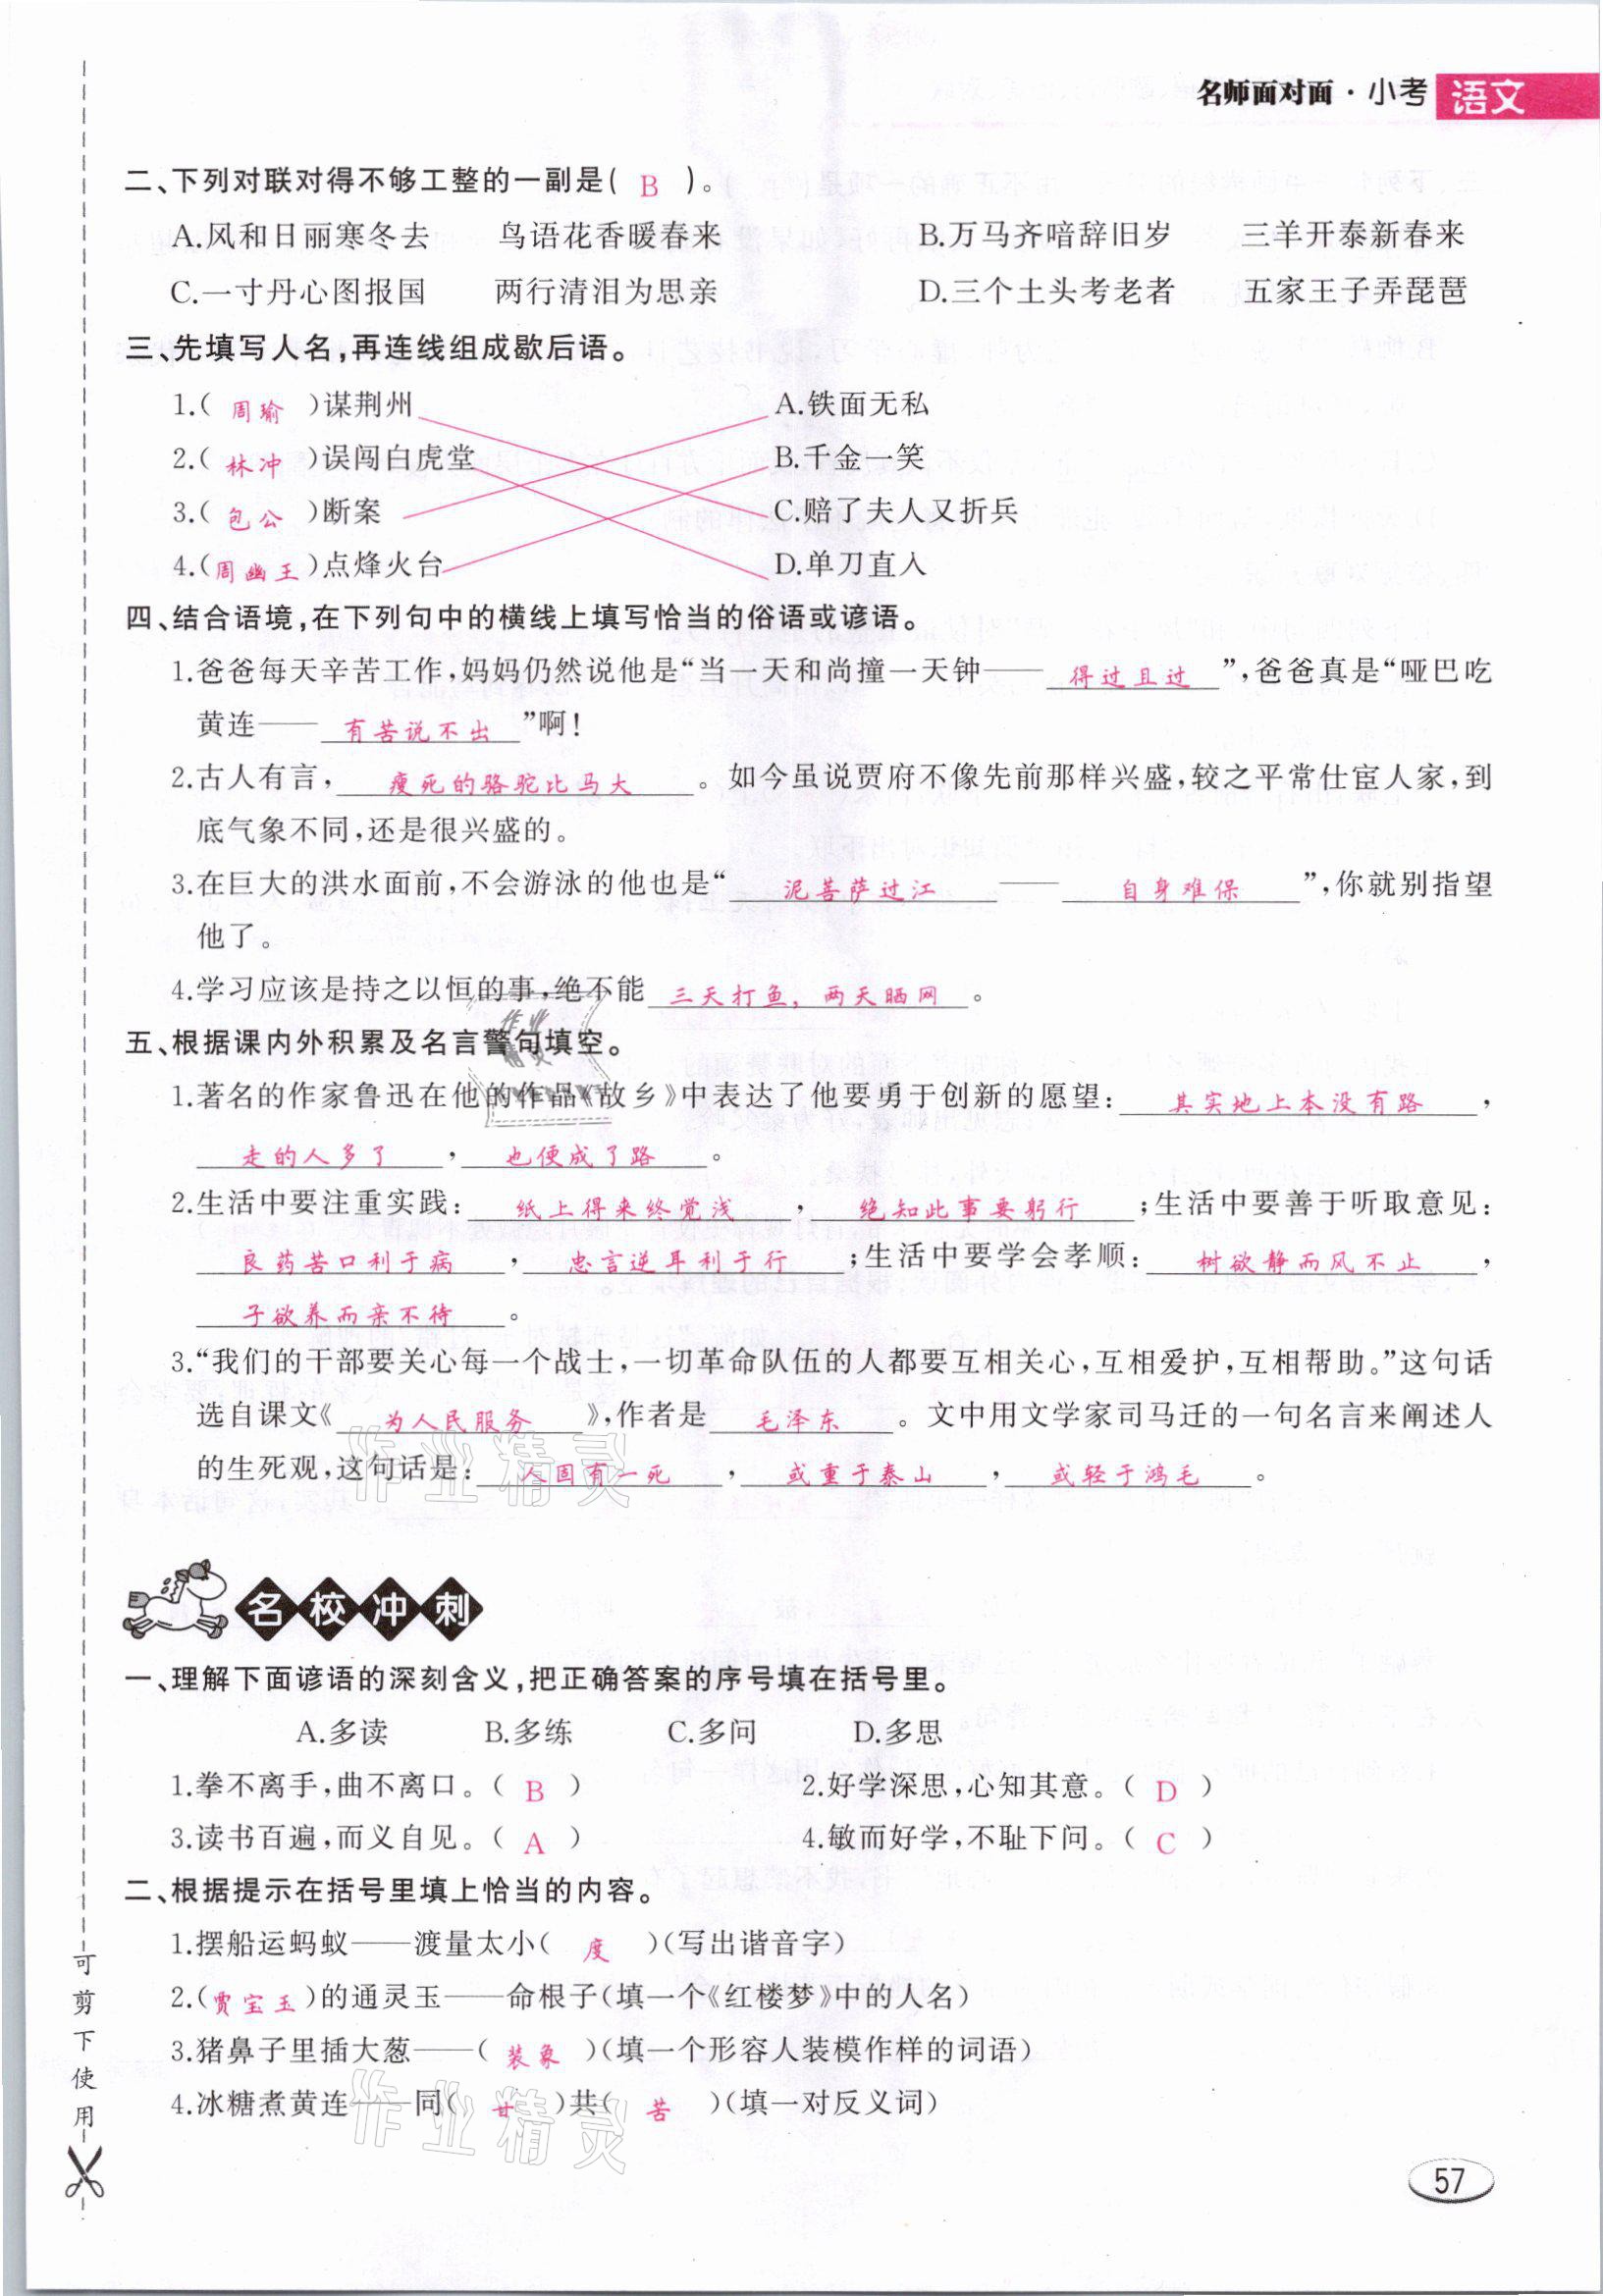 名师面对面·小考 语文
二、下列对联对得不够工整的一副是( B )。
A.风和日丽寒冬去 鸟语花香暖春来 B.万马齐喑辞旧岁 三羊开泰新春来
C.一寸丹心图报国 两行清泪为思亲 D.三个土头考老者 五家王子弄琵琶
三、先填写人名,再连线组成歇后语。
1.( 周瑜 )谋荆州 A.铁面无私
2.( 林冲 )误闯白虎堂 B.千金一笑
3.( 包公 )断案 C.赔了夫人又折兵
4.( 周幽王 )点烽火台 D.单刀直入
四、结合语境,在下列句中的横线上填写恰当的俗语或谚语。
1.爸爸每天辛苦工作,妈妈仍然说他是“当一天和尚撞一天钟—— 得过且过 ”,爸爸真是“哑巴吃
黄连—— 有苦说不出 ”啊!
2.古人有言, 瘦死的骆驼比马大 。如今虽说贾府不像先前那样兴盛,较之平常仕宦人家,到
底气象不同,还是很兴盛的。
3.在巨大的洪水面前,不会游泳的他也是“ 泥菩萨过江 —— 自身难保 ”,你就别指望
他了。
4.学习应该是持之以恒的事,绝不能 三天打鱼，两天晒网 。
五、根据课内外积累及名言警句填空。
1.著名的作家鲁迅在他的作品《故乡》中表达了他要勇于创新的愿望: 其实地上本没有路 ,
走的人多了 , 也便成了路 。
2.生活中要注重实践: 纸上得来终觉浅 , 绝知此事要躬行 ;生活中要善于听取意见:
良药苦口利于病 , 忠言逆耳利于行 ;生活中要学会孝顺: 树欲静而风不止 ,
子欲养而亲不待 。
3.“我们的干部要关心每一个战士,一切革命队伍的人都要互相关心,互相爱护,互相帮助。”这句话
选自课文《 为人民服务 》,作者是 毛泽东 。文中用文学家司马迁的一句名言来阐述人
的生死观,这句话是: 人固有一死 , 或重于泰山 , 或轻于鸿毛 。
名校冲刺
一、理解下面谚语的深刻含义,把正确答案的序号填在括号里。
A.多读 B.多练 C.多问 D.多思
1.拳不离手,曲不离口。( B ) 2.好学深思,心知其意。( D )
3.读书百遍,而义自见。( A ) 4.敏而好学,不耻下问。( C )
二、根据提示在括号里填上恰当的内容。
1.摆船运蚂蚁——渡量太小( 度 )(写出谐音字)
2.( 贾宝玉 )的通灵玉——命根子(填一个《红楼梦》中的人名)
3.猪鼻子里插大葱——( 装象 )(填一个形容人装模作样的词语)
4.冰糖煮黄连——同( 甘 )共( 苦 )(填一对反义词)
可剪下使用
作业精灵
作业精灵
作业精灵
57